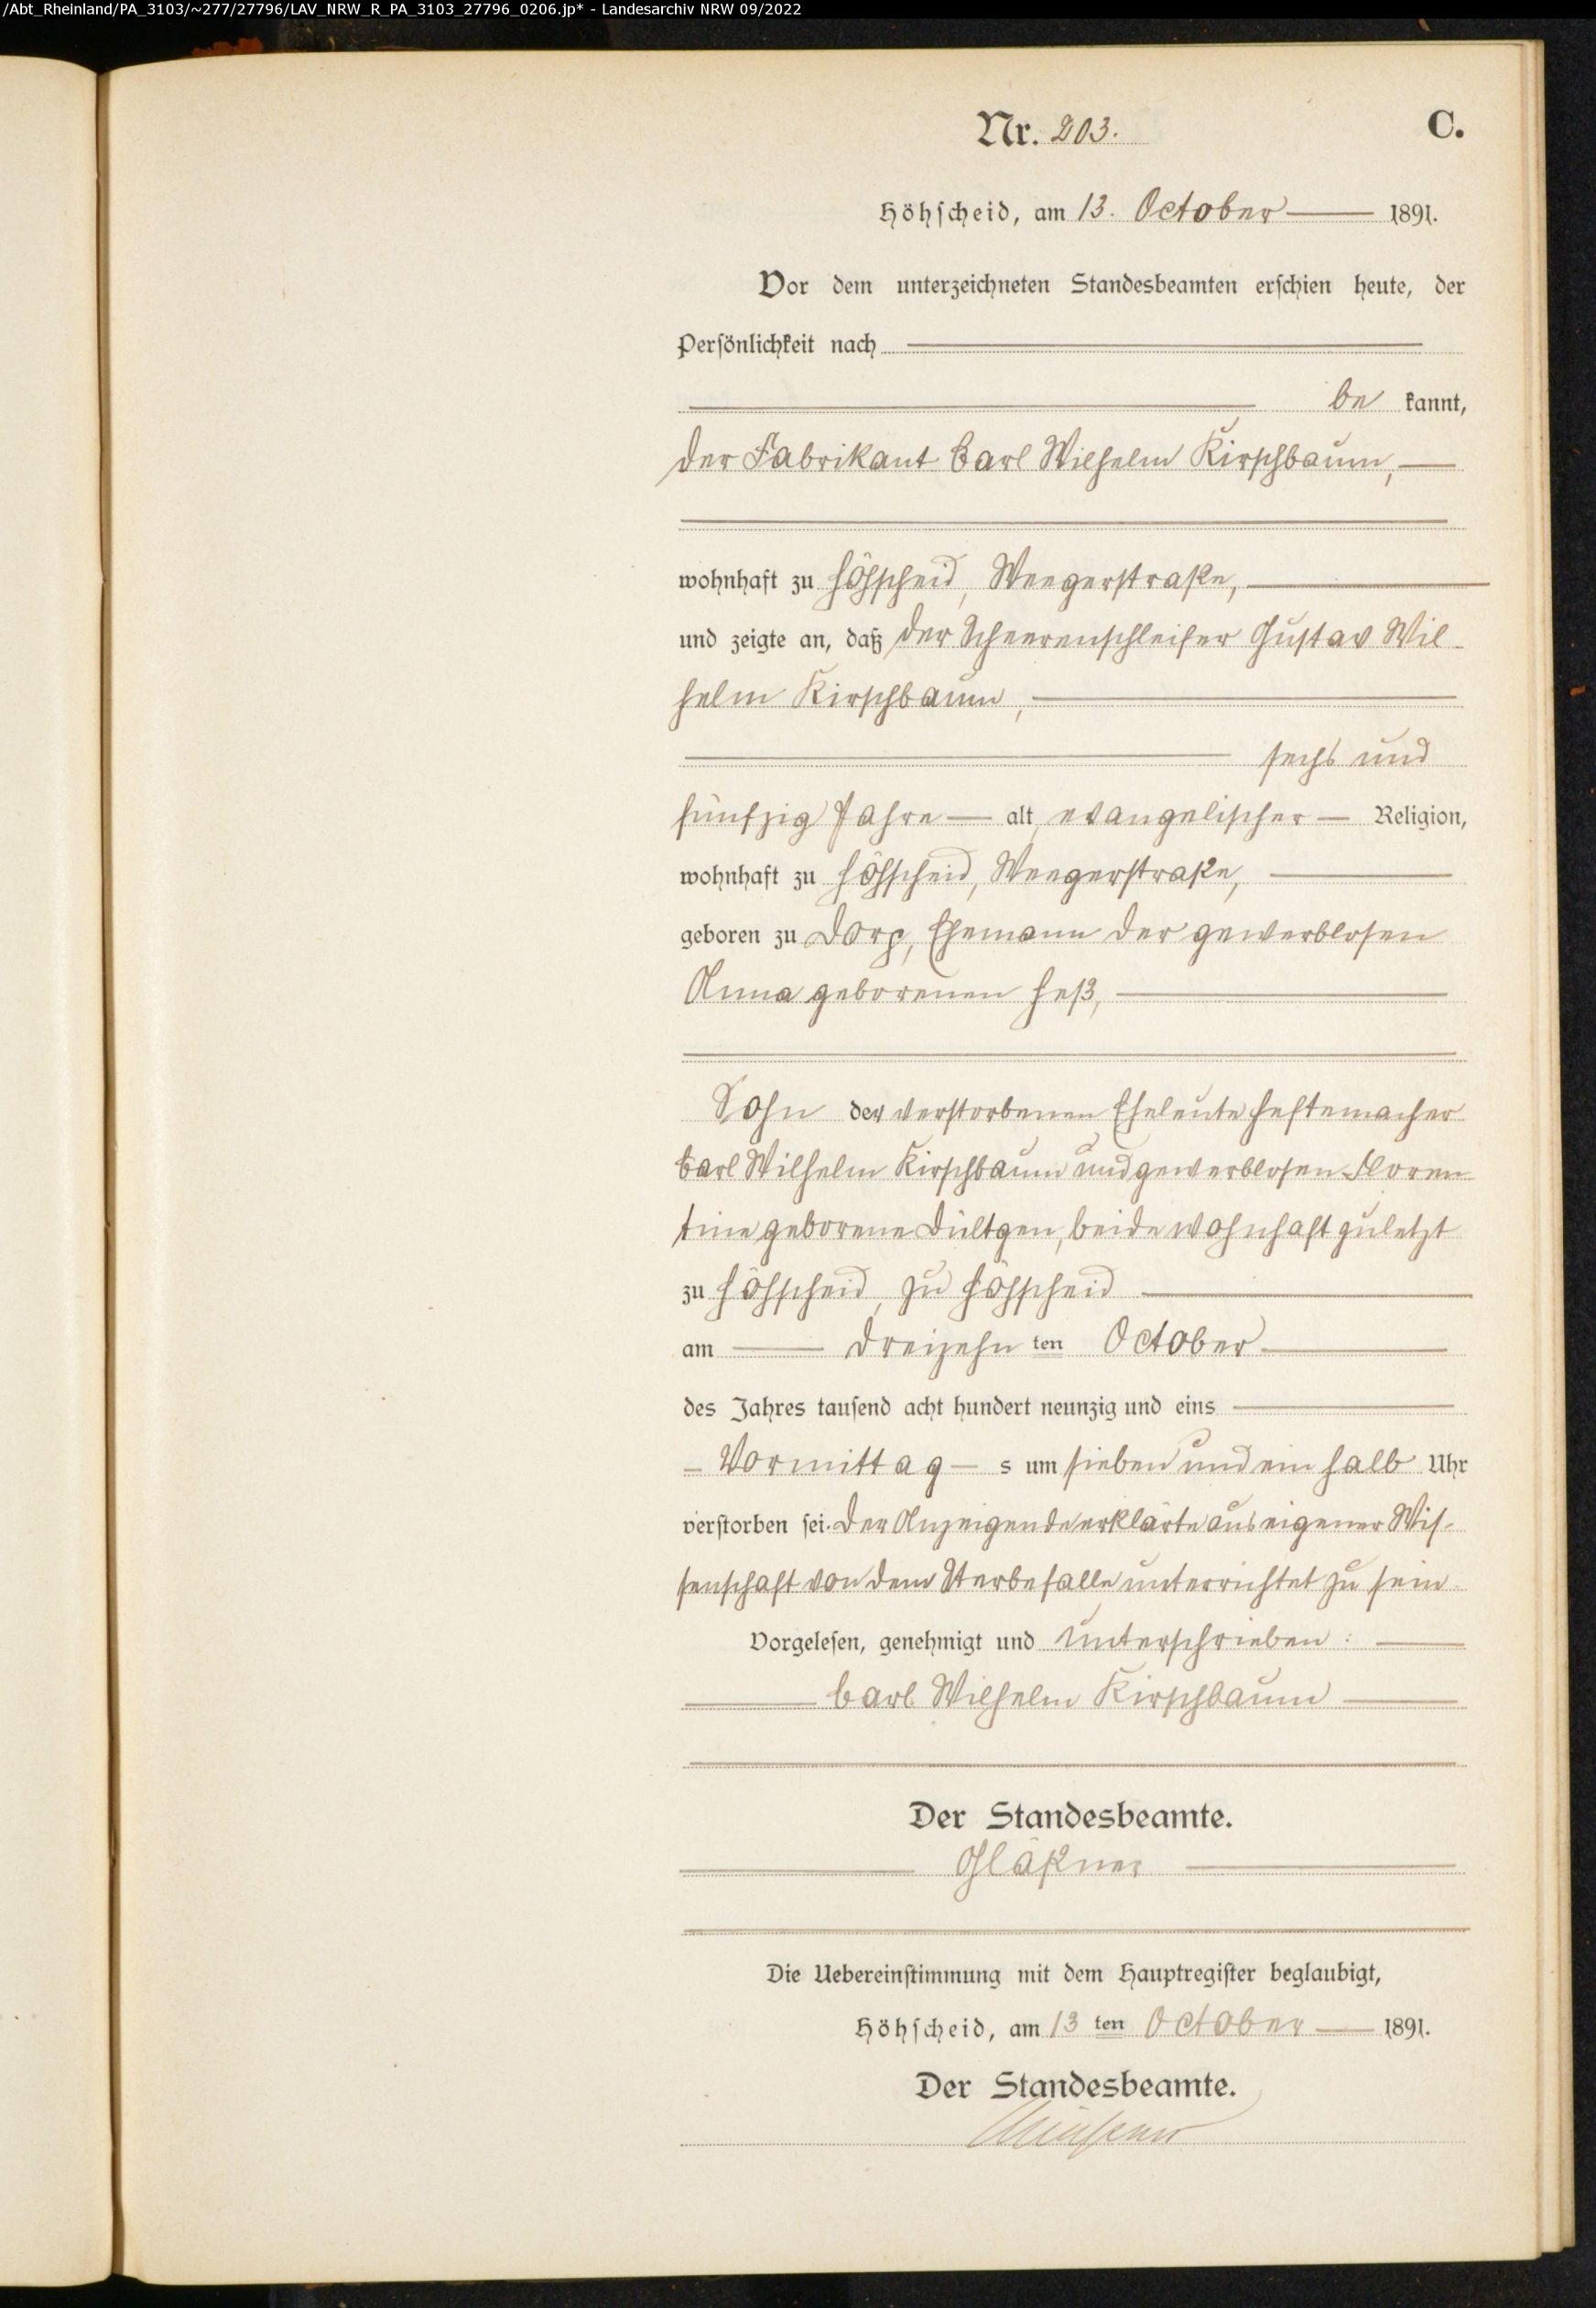 /Abt_Rheinland/PA_3103/~277/27796/LAV_NRW_R_PA_3103_27796_0206.jp* - Landesarchiv NRW 09/2022
Nr. 203.
C.
Höhscheid, am 13. October 1891.
Vor dem unterzeichneten Standesbeamten erschien heute, der
Persönlichkeit nach
be kannt,
der Fabrikant Carl Wilhelm Kirschbaum,
wohnhaft zu Höhscheid, Weegerstraße,
und zeigte an, daß der Scheerenschleifer Gustav Wil-
helm Kirschbaum,
sechs und
fünfzig Jahre alt, evangelischer Religion,
wohnhaft zu Höhscheid, Weegerstraße,
geboren zu Dorp, Ehemann der gewerblosen
Anna geborenen Heß,
Sohn der verstorbenen Eheleute Heftemacher
Carl Wilhelm Kirschbaum und gewerblosen Floren
tine geborene Dültgen, beide wohnhaft zuletzt
zu Höhscheid, zu Höhscheid
am dreizehn ten October
des Jahres tausend acht hundert neunzig und eins
Vormittag s um sieben und ein halb Uhr
verstorben sei. Der Anzeigende erklärte aus eigener Wis-
senschaft von dem Sterbefalle unterrichtet zu sein.
Vorgelesen, genehmigt und unterschrieben:
Carl Wilhelm Kirschbaum
Der Standesbeamte.
Gläßner
Die Uebereinstimmung mit dem Hauptregister beglaubigt,
Höhscheid, am 13 ten October 1891.
Der Standesbeamte.